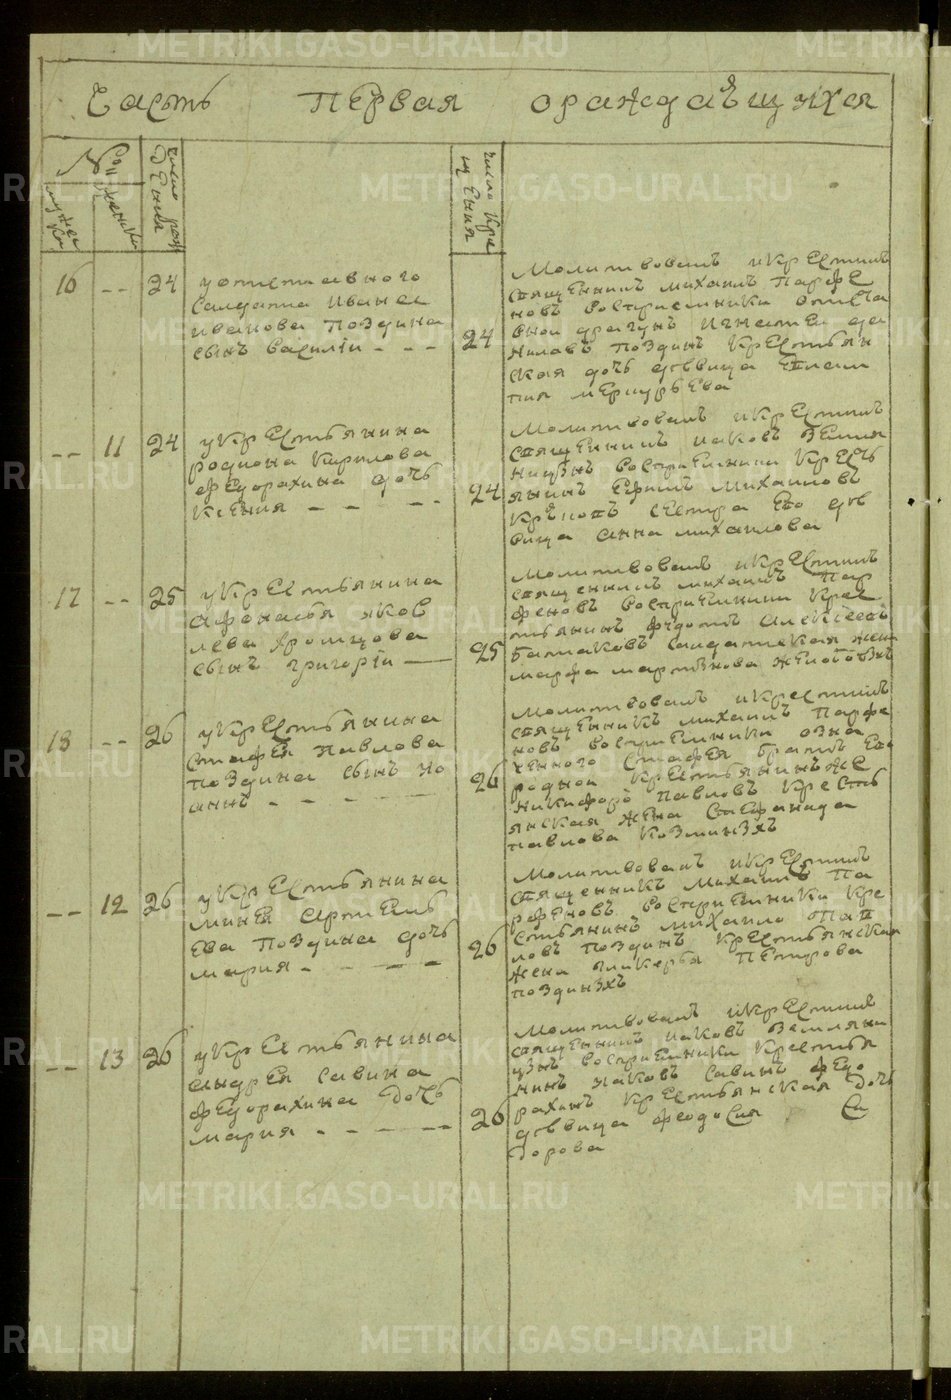 METRIKI.GASO-URAL.RU
Часть первая ораждающихся
число рож
дения
число кре
щения
мужес
женски
16 -- 24
уотставного
салдата Ивана
Иванова Поздина
сынъ Василiи - - -
24
Молитвовалъ икрестилъ
священникъ михаилъ Парфе
новъ Восприемники отста
внои драгунъ Игнатеи да
ниловъ Поздинъ крестьян
ская дочь девица Евлам
пия меркурьева
-- 11 24
укрестьянина
родиона Кирилова
федорахина дочь
Ксения - - - -
24
Молитвовалъ икрестилъ
священникъ иаковъ Земля
ницынъ восприемники кресть
янинъ Ефимъ михаиловъ
сестра Ево дев
вица анна михаилова
17 -- 25
укрестьянина
афонасья яков
лева Хромцова
сынъ григорiи —
25
Молитвовалъ икрестилъ
священникъ михаилъ Пар
феновъ восприемники крес
тьянинъ федотъ алексеевъ
салдатская жена
марфа мартынова
18 -- 26
укрестьянина
Стафея Павлова
поздина сынъ ио
аннъ - - - —
26
Молитвовалъ икрестилъ
священникъ михаилъ Парфе
новъ восприемники озна
ченного Стафея братъ Ево
роднои крестьянинъ же
никифоръ Павловъ кресть
янская жена Стефанида
павлова козминыхъ
-- 12 26
укрестьянина
минея артемь
ева Поздина дочь
мария - - — —
26
Молитвовалъ икрестилъ
священникъ михаилъ Па
рфеновъ восприемники кре
стьянинъ михаило
ловъ Поздинъ крестьянская
жена гликерья Петрова
поздиныхъ
-- 13 26
укрестьянина
андрея Савина
федорахина дочь
мария - - — —
26
Молитвовалъ икрестилъ
священникъ иаковъ Землянi
цынъ восприемники крестья
нинъ иаковъ Савинъ федо
рахинъ крестьянская дочь
девица феодосия Си
дорова